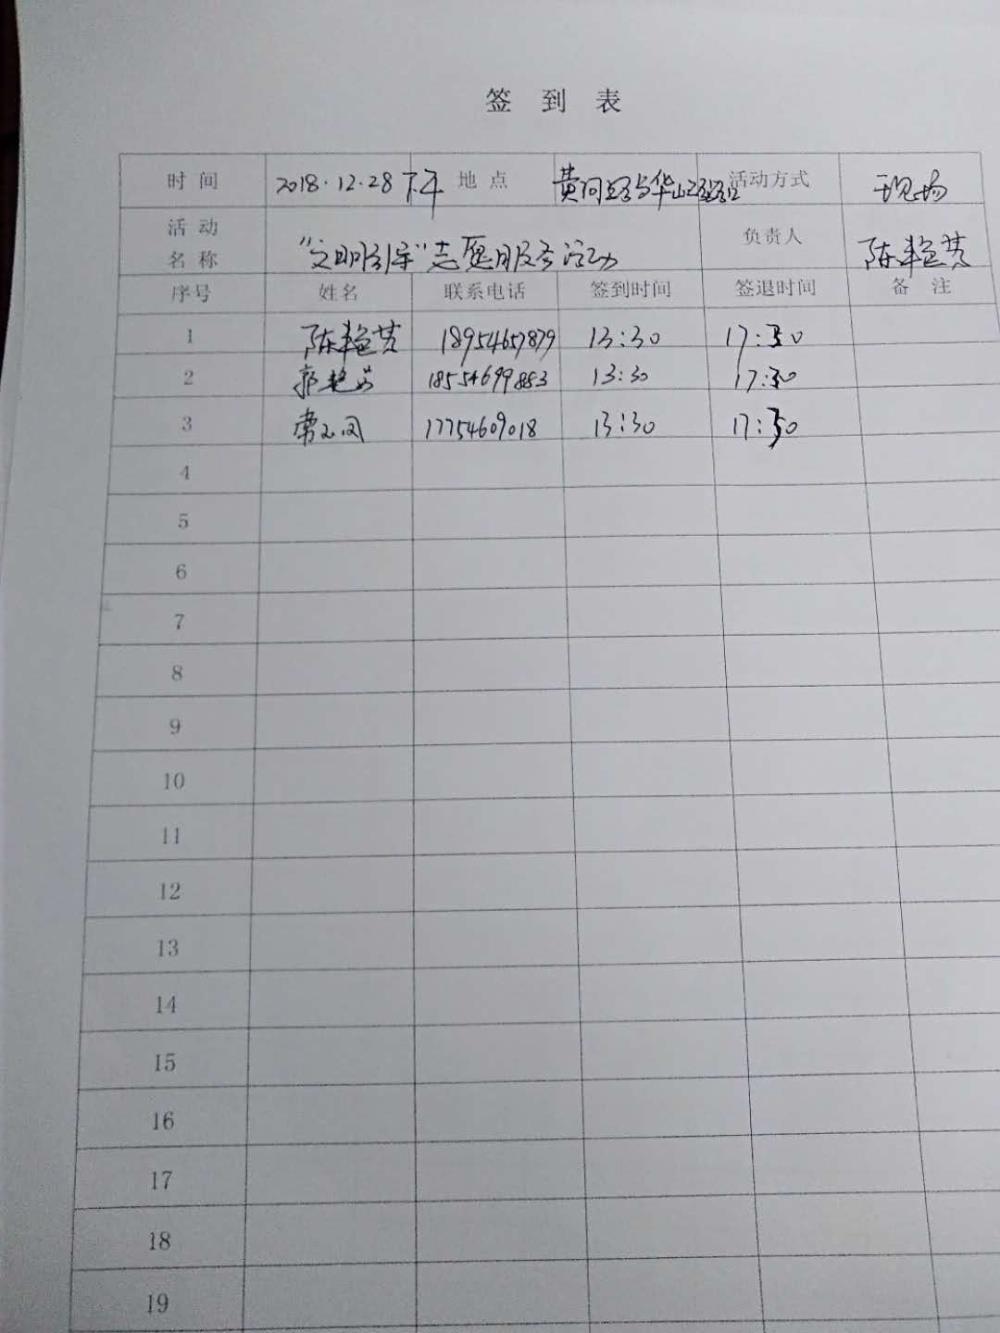 签 到 表
时 间 2018.12.28 下午 地 点 黄河路与华山路 活动方式 现场
活 动
名 称 "文明引导"志愿服务活动 负责人 陈艳芳
序号 姓名 联系电话 签到时间 签退时间 备 注
1 18954657879 13:30 17:30
2 18554699883 13:30 17:30
3 17754609018 13:30 17:30
4
5
6
7
8
9
10
11
12
13
14
15
16
17
18
19